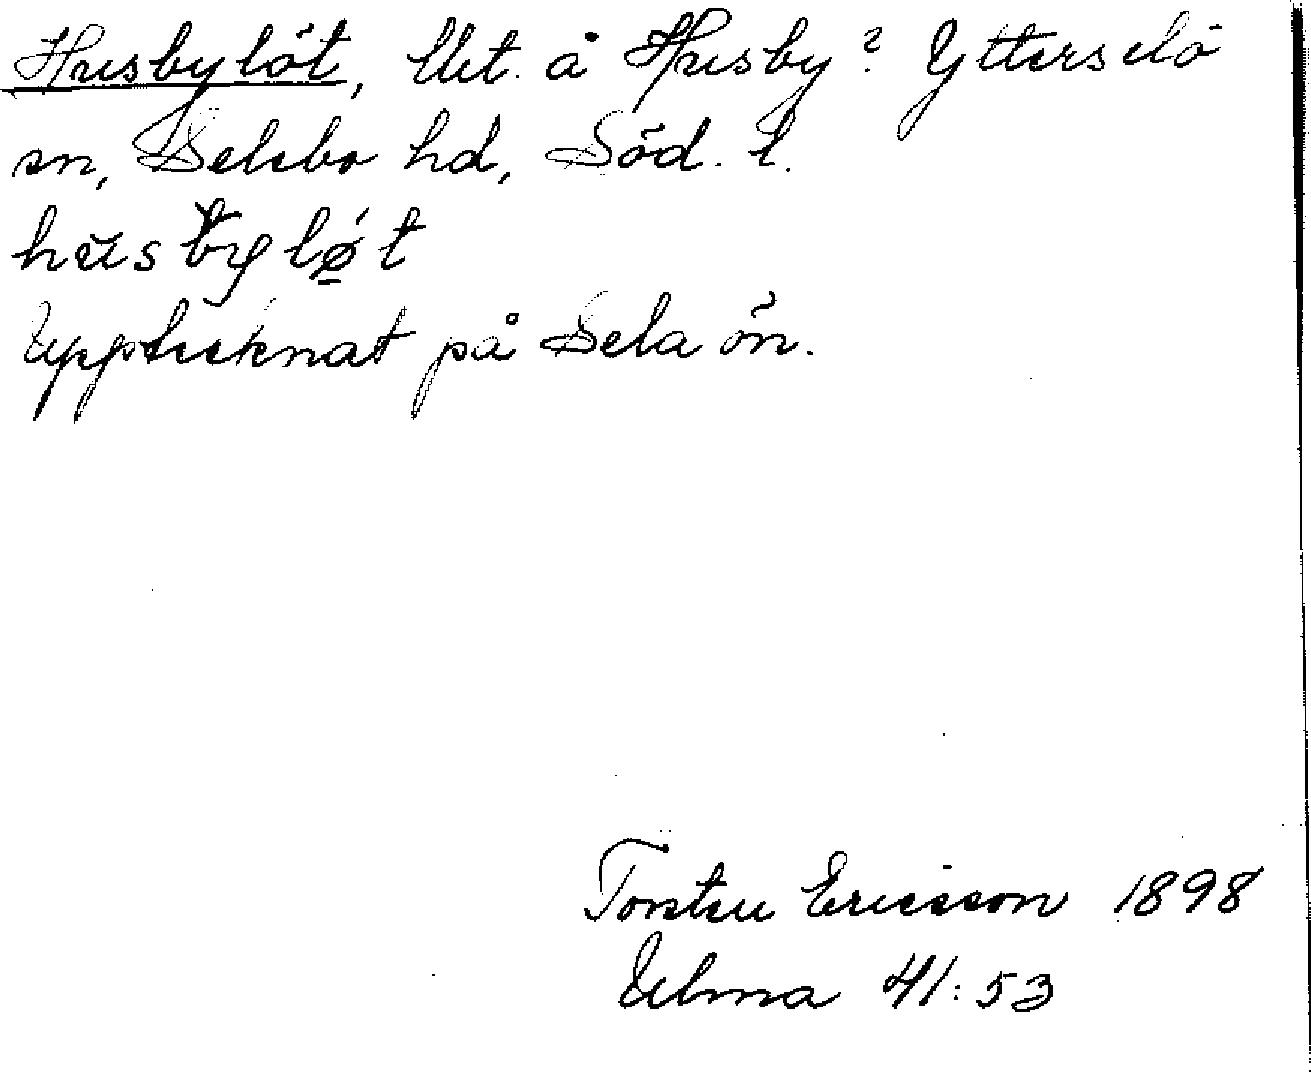 Husbylöt, Utt. å Husby? Ytterselö
sn, Selebo hd, Söd. l.
hŭsbylǿt
Upptecknat på Selaön.
Torsten Ericsson 1898
Ulma 41:53